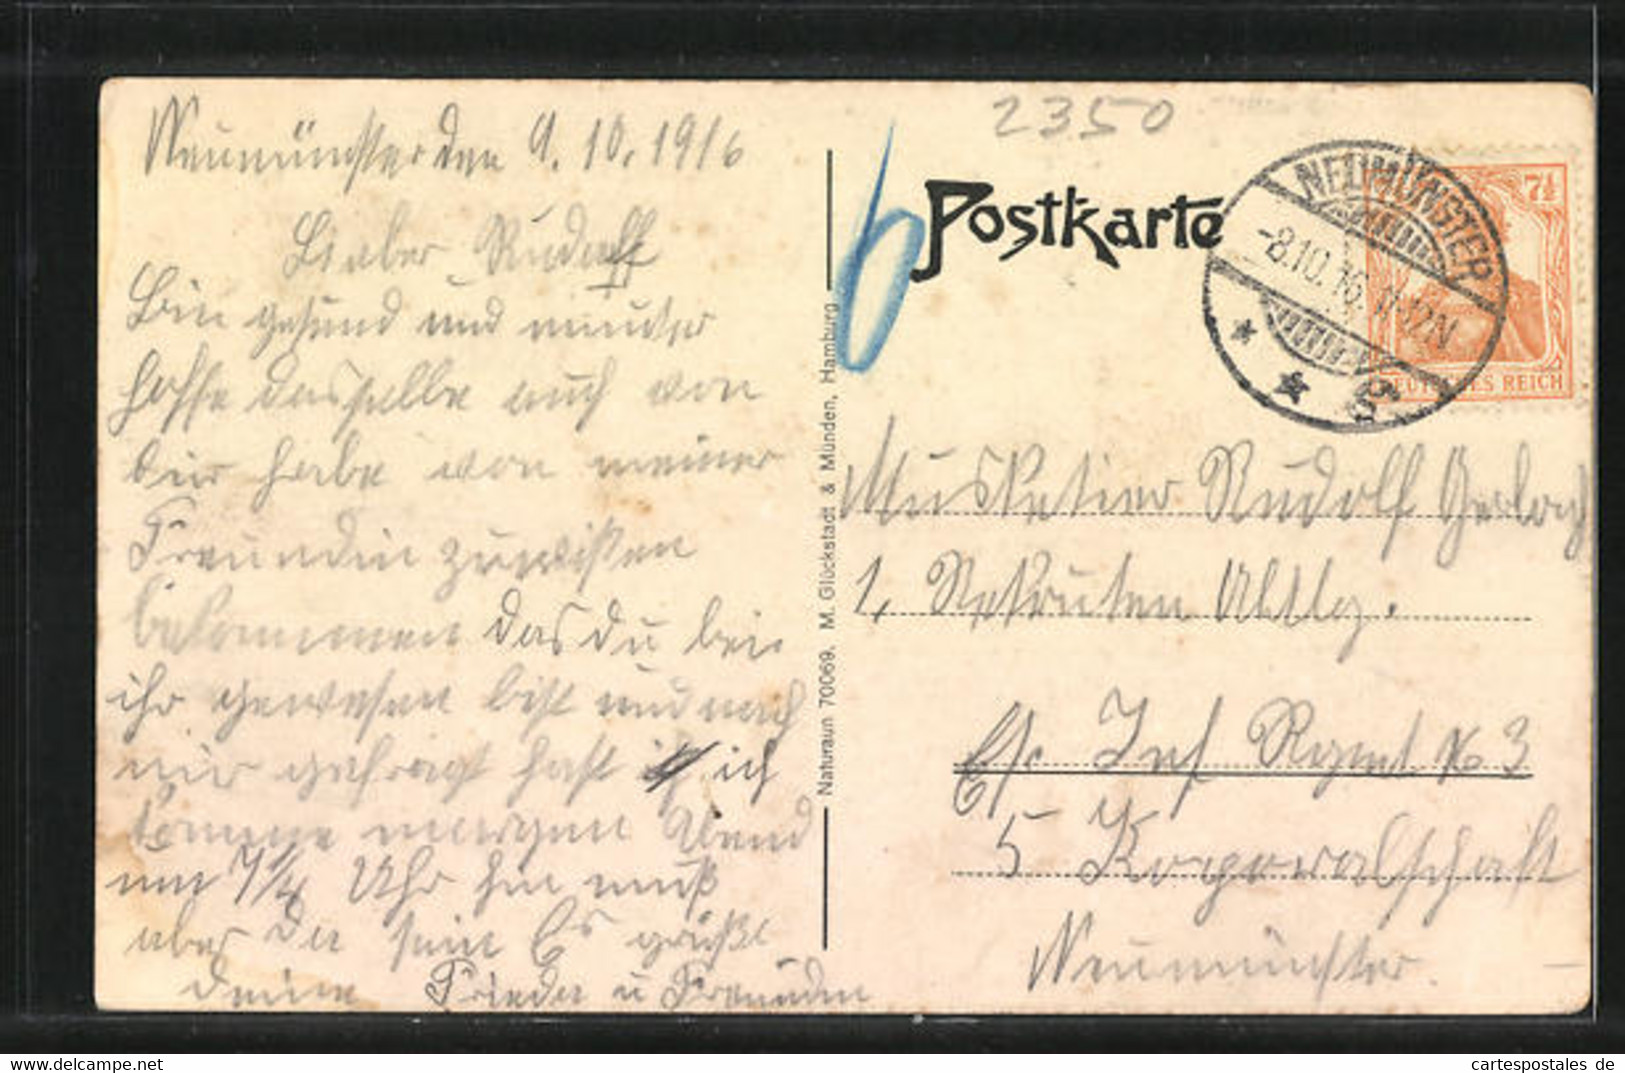 2350
Neumünster den 9. 10. 1916
Lieber Rudolf
Bin gesund und munter
hoffe dasselbe auch von
dir habe von meiner
Freundin zuwissen
bekommen das du bei
ihr gewesen bist und nach
mir gefragt hast ich
komme morgen Abend
um 7¼ Uhr hin muß
aber da sein Es grüßt
deine Frieda u Freundin
6
Postkarte
NEUMÜNSTER
-8.10.16. 11-12N
* * 5
7½
DEUTSCHES REICH
Musketier Rudolf
1. Rekruten Abtlg.
Ers. Inf Rgmt No 3
5 Korporalschaft
Neumünster.
Naturaun 70069. M. Glückstadt & Münden, Hamburg
cartespostales de